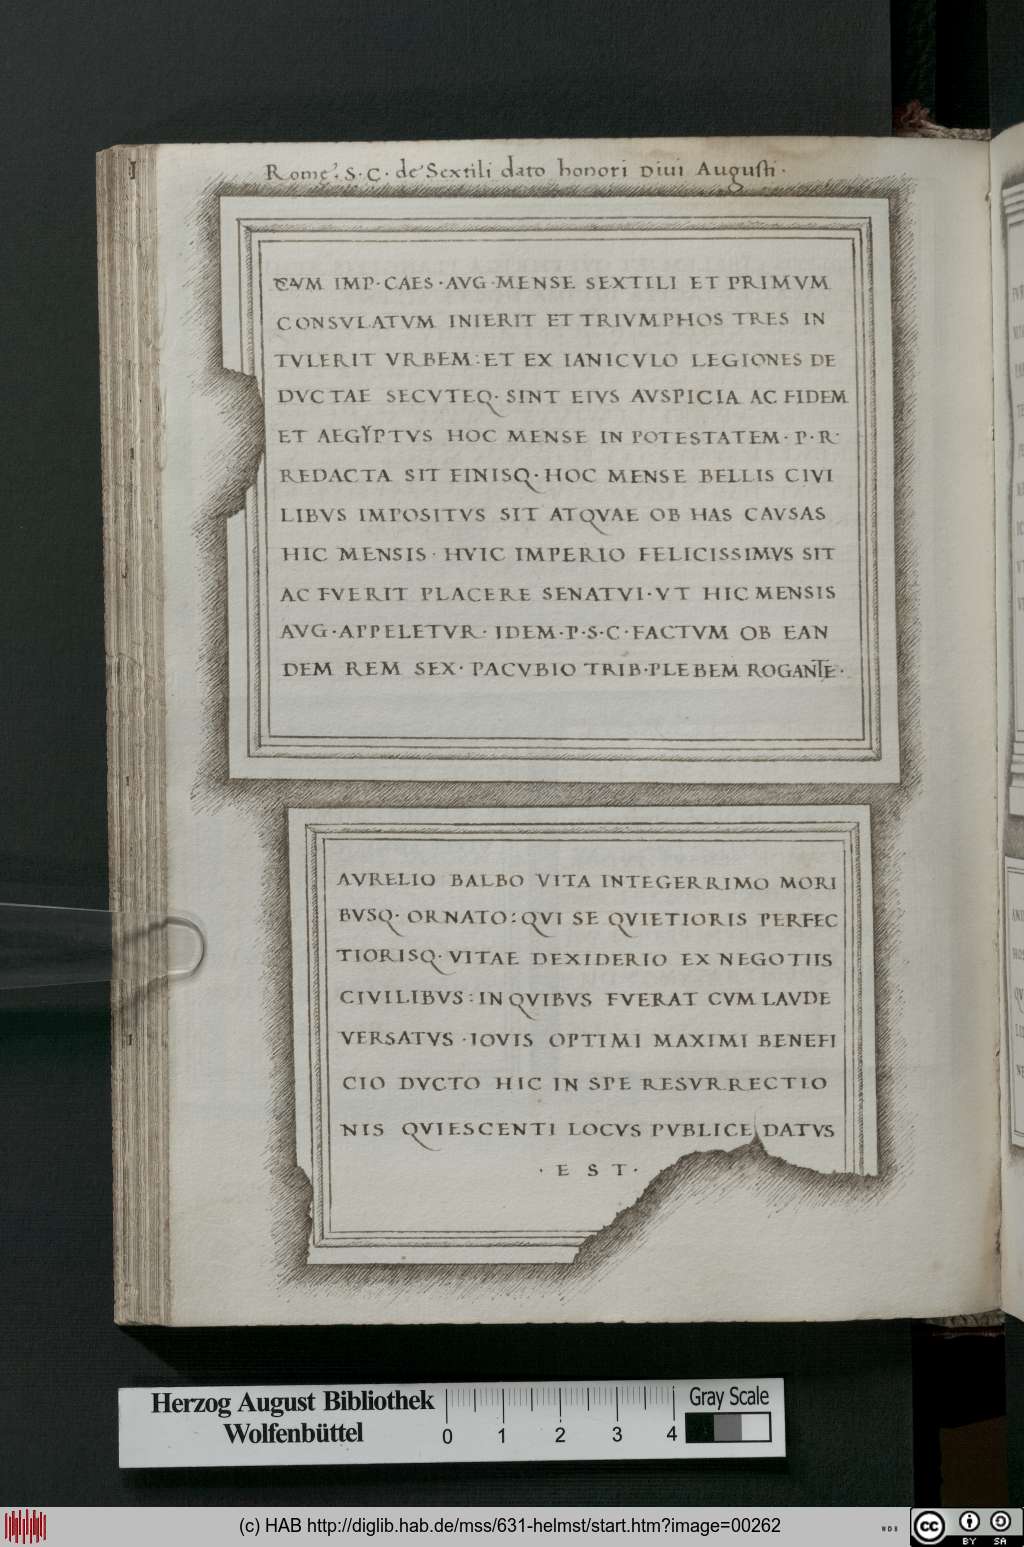 Romę. S·C· de Sextili dato honori Diui Augusti·
CVM IMP·CAES·AVG·MENSE SEXTILI ET PRIMVM
CONSVLATVM INIERIT ET TRIVMPHOS TRES IN
TVLERIT VRBEM:ET EX IANICVLO LEGIONES DE
DVCTAE SECVTEQ·SINT EIVS AVSPICIA AC FIDEM
ET AEGYPTVS HOC MENSE IN POTESTATEM·P·R·
REDACTA SIT FINISQ·HOC MENSE BELLIS CIVI
LIBVS IMPOSITVS SIT ATQVAE OB HAS CAVSAS
HIC MENSIS·HVIC IMPERIO FELICISSIMVS SIT
AC FVERIT PLACERE SENATVI·VT HIC MENSIS
AVG·APPELETVR·IDEM·P·S·C·FACTVM OB EAN
DEM REM SEX·PACVBIO TRIB·PLEBEM ROGANTE·
AVRELIO BALBO VITA INTEGERRIMO MORI
BVSQ·ORNATO:QVI SE QVIETIORIS PERFEC
TIORISQ·VITAE DEXIDERIO EX NEGOTIIS
CIVILIBVS:IN QVIBVS FVERAT CVM LAVDE
VERSATVS·IOVIS OPTIMI MAXIMI BENEFI
CIO DVCTO HIC IN SPE RESVRRECTIO
NIS QVIESCENTI LOCVS PVBLICE DATVS
·E S T·
Herzog August Bibliothek
Wolfenbüttel
0 1 2 3 4
Gray Scale
(c) HAB http://diglib.hab.de/mss/631-helmst/start.htm?image=00262
WDB
cc BY SA